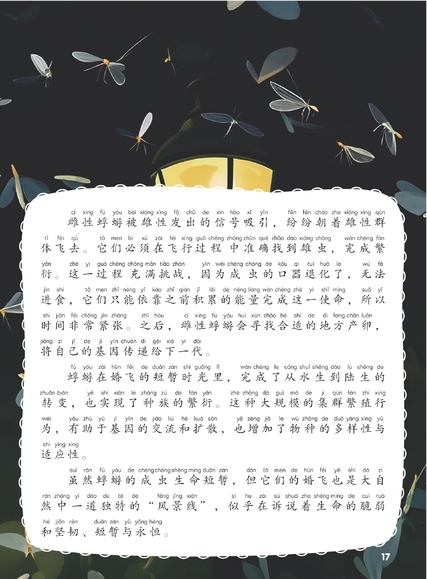 雌性蜉蝣被雄性发出的信号吸引，纷纷朝着雄性群
体飞去。它们必须在飞行过程中准确找到雄虫，完成繁
衍。这一过程充满挑战，因为成虫的口器退化了，无法
进食，它们只能依靠之前积累的能量完成这一使命，所以
时间非常紧张。之后，雌性蜉蝣会寻找合适的地方产卵，
将自己的基因传递给下一代。
蜉蝣在婚飞的短暂时光里，完成了从水生到陆生的
转变，也实现了种族的繁衍。这种大规模的集群繁殖行
为，有助于基因的交流和扩散，也增加了物种的多样性与
适应性。
虽然蜉蝣的成虫生命短暂，但它们的婚飞也是大自
然中一道独特的“风景线”，似乎在诉说着生命的脆弱
和坚韧、短暂与永恒。
17